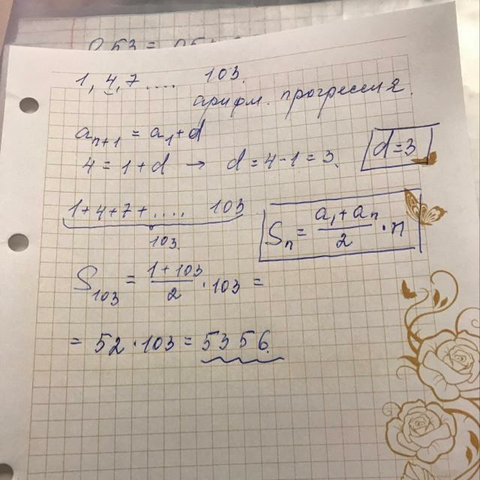 1, 4, 7 .... 103.
арифм. прогрессия.
a_{n+1} = a_1 + d
4 = 1 + d → d = 4 - 1 = 3. d = 3
1 + 4 + 7 + .... 103
103
S_n = \frac{a_1 + a_n}{2} · n
S_{103} = \frac{1 + 103}{2} · 103 =
= 52 · 103 = 5356.